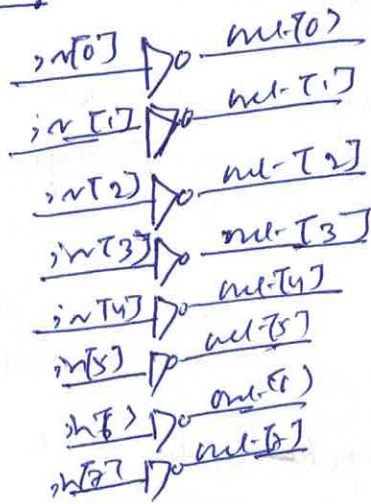 in[0] out[0]
in[1] out[1]
in[2] out[2]
in[3] out[3]
in[4] out[4]
in[5] out[5]
in[6] out[6]
in[7] out[7]